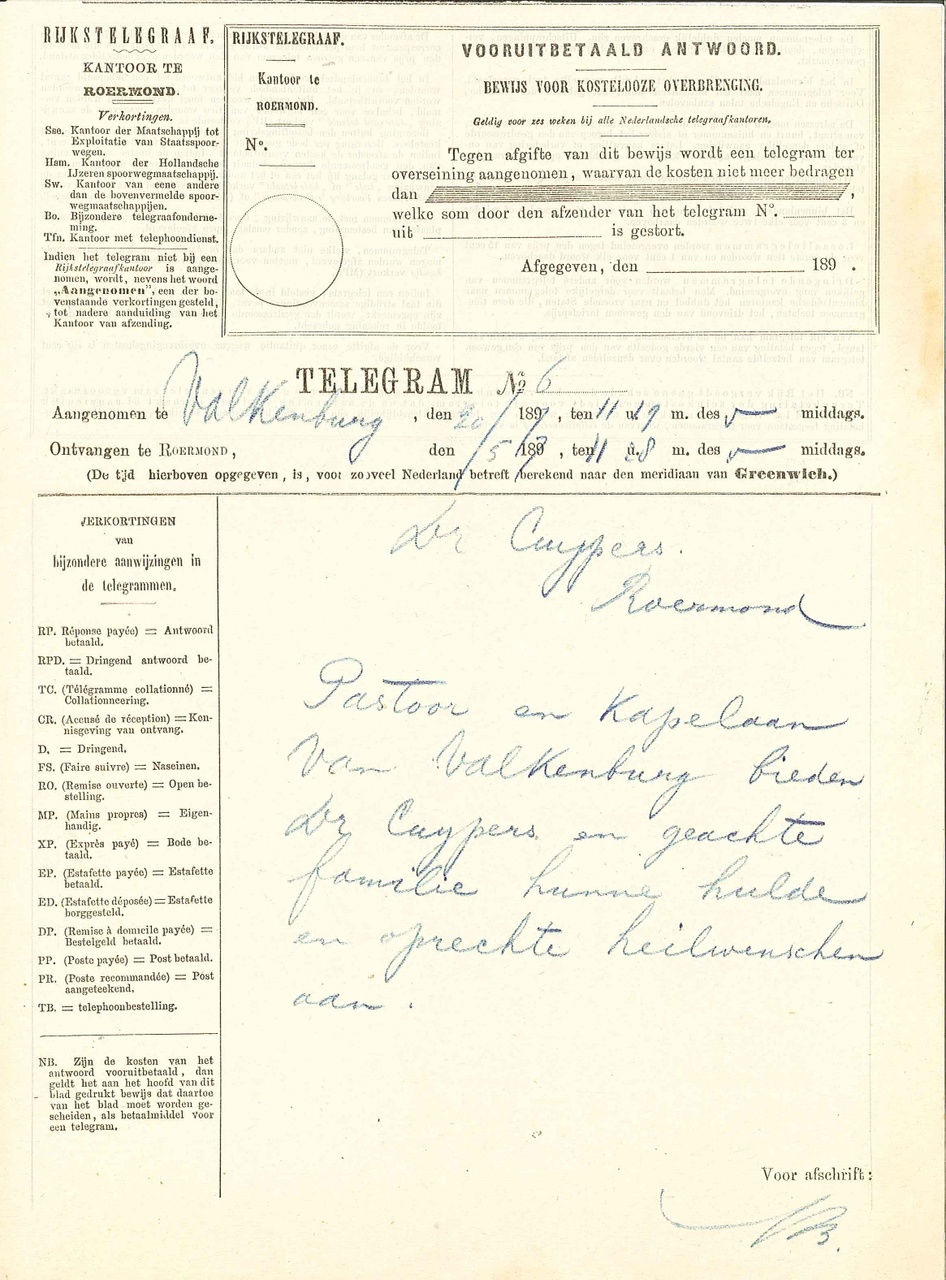 RIJKSTELEGRAAF,
KANTOOR TE
ROERMOND.
Verkortingen.
Sse. Kantoor der Maatschappij tot
Exploitatie van Staatsspoor-
wegen.
Hsm. Kantoor der Hollandsche
IJzeren spoorwegmaatschappij.
Sw. Kantoor van eene andere
dan de bovenvermelde spoor-
wegmaatschappijen.
Bo. Bijzondere telegraafonderne-
ming.
Tfn. Kantoor met telephoondienst.
Indien het telegram niet bij een
Rijkstelegraafkantoor is aange-
nomen, wordt, nevens het woord
„Aangenomen”, een der bo-
venstaande verkortingen gesteld,
tot nadere aanduiding van het
Kantoor van afzending.
RIJKSTELEGRAAF.
Kantoor te
ROERMOND.
N°.
VOORUITBETAALD ANTWOORD.
BEWIJS VOOR KOSTELOOZE OVERBRENGING.
Geldig voor zes weken bij alle Nederlandsche telegraafkantoren.
Tegen afgifte van dit bewijs wordt een telegram ter
overseining aangenomen, waarvan de kosten niet meer bedragen
dan ,
welke som door den afzender van het telegram N°.
uit is gestort.
Afgegeven, den 189 .
TELEGRAM No 6
Aangenomen te Valkenburg, den 20/ 1897, ten 11 u. 19 m. des v middags.
Ontvangen te ROERMOND, den /5 1897, ten 11 u. 28 m. des v middags.
(De tijd hierboven opgegeven, is, voor zooveel Nederland betreft berekend naar den meridiaan van Greenwich.)
VERKORTINGEN
van
bijzondere aanwijzingen in
de telegrammen.
RP. Réponse payée) = Antwoord
betaald.
RPD. = Dringend antwoord be-
taald.
TC. (Télégramme collationné) =
Collationneering.
CR. (Accusé de réception) = Ken-
nisgeving van ontvang.
D. = Dringend.
FS. (Faire suivre) = Naseinen.
RO. (Remise ouverte) = Open be-
stelling.
MP. (Mains propres) = Eigen-
handig.
XP. (Exprès payé) = Bode be-
taald.
EP. (Estafette payée) = Estafette
betaald.
ED. (Estafette déposée) = Estafette
borggesteld.
DP. (Remise à domicile payée) =
Bestelgeld betaald.
PP. (Poste payée) = Post betaald.
PR. (Poste recommandée) = Post
aangeteekend.
TB. = telephoonbestelling.
NB. Zijn de kosten van het
antwoord vooruitbetaald, dan
geldt het aan het hoofd van dit
blad gedrukt bewijs dat daartoe
van het blad moet worden ge-
scheiden, als betaalmiddel voor
een telegram.
Dr Cuypers.
Roermond
Pastoor en Kapelaan
Van Valkenburg bieden
Dr Cuypers en geachte
familie hunne hulde
en oprechte heilwenschen
aan.
Voor afschrift: